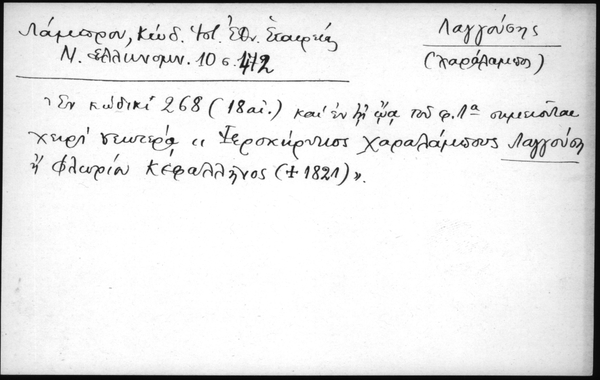 Λάμπρου, Κώδ. Ἱστ. Ἐθν. Ἑταιρείας
Ν. Ἑλληνομν. 10 σ. 472
Λαγγούσης
(Χαράλαμπος)
"Ἐν κώδικι 268 (18 αἰ.) καὶ ἐν τῇ ᾤᾳ τοῦ φ. 1α σημειοῦται
χειρὶ νεωτέρᾳ « Ἱεροκήρυκος Χαραλάμπους Λαγγούση
ἢ Φλωρίου Κεφαλλῆνος (+ 1821)».